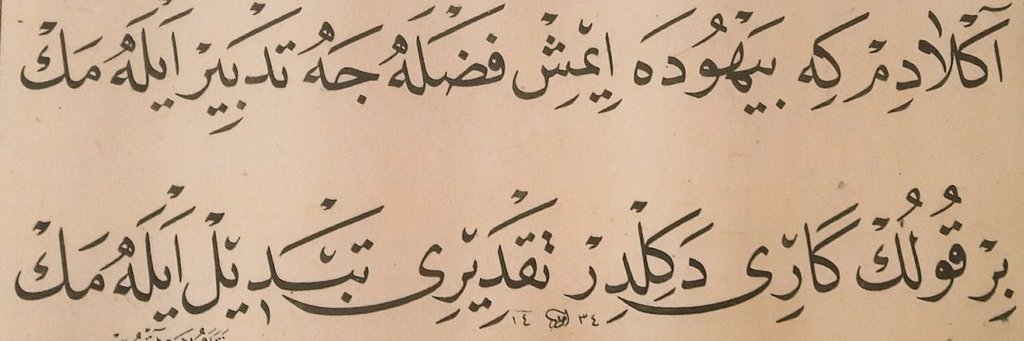 آڭلادم كه بيهوده ايمش فضله جه تدبير ايله مك
بر قولڭ كارى دكلدر تقديرى تبديل ايله مك
١٤ ٣٤